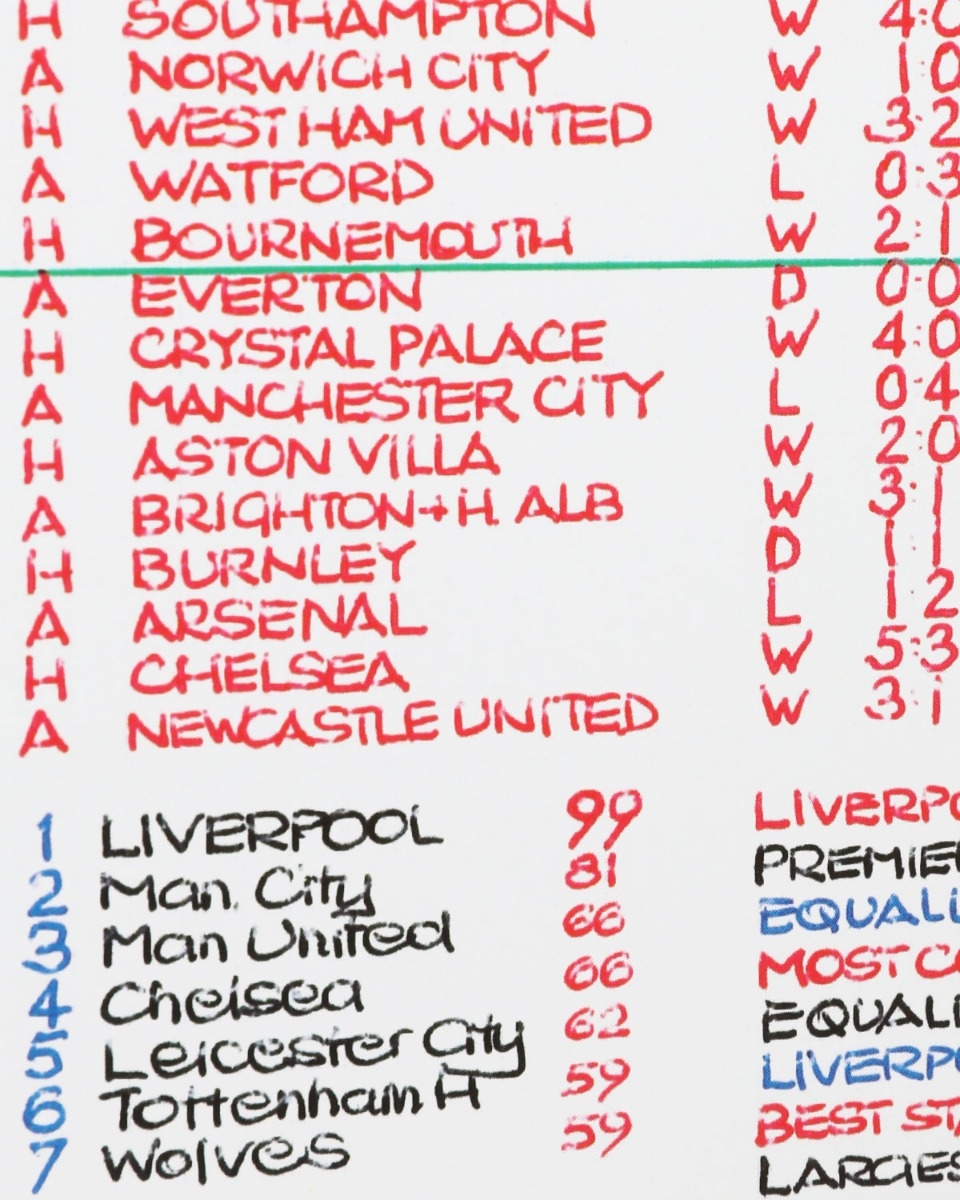 H SOUTHAMPTON W 4:0
A NORWICH CITY W 1:0
H WEST HAM UNITED W 3:2
A WATFORD L 0:3
H BOURNEMOUTH W 2:1
A EVERTON D 0:0
H CRYSTAL PALACE W 4:0
A MANCHESTER CITY L 0:4
H ASTON VILLA W 2:0
A BRIGHTON+H. ALB W 3:1
H BURNLEY D 1:1
A ARSENAL L 1:2
H CHELSEA W 5:3
A NEWCASTLE UNITED W 3:1
1 LIVERPOOL 99 LIVERPO
2 Man. City 81 PREMIE
3 Man United 66 EQUALI
4 Chelsea 66 MOST CO
5 Leicester City 62 EQUALI
6 Tottenham H 59 LIVERPO
7 Wolves 59 BEST STA
LARGES